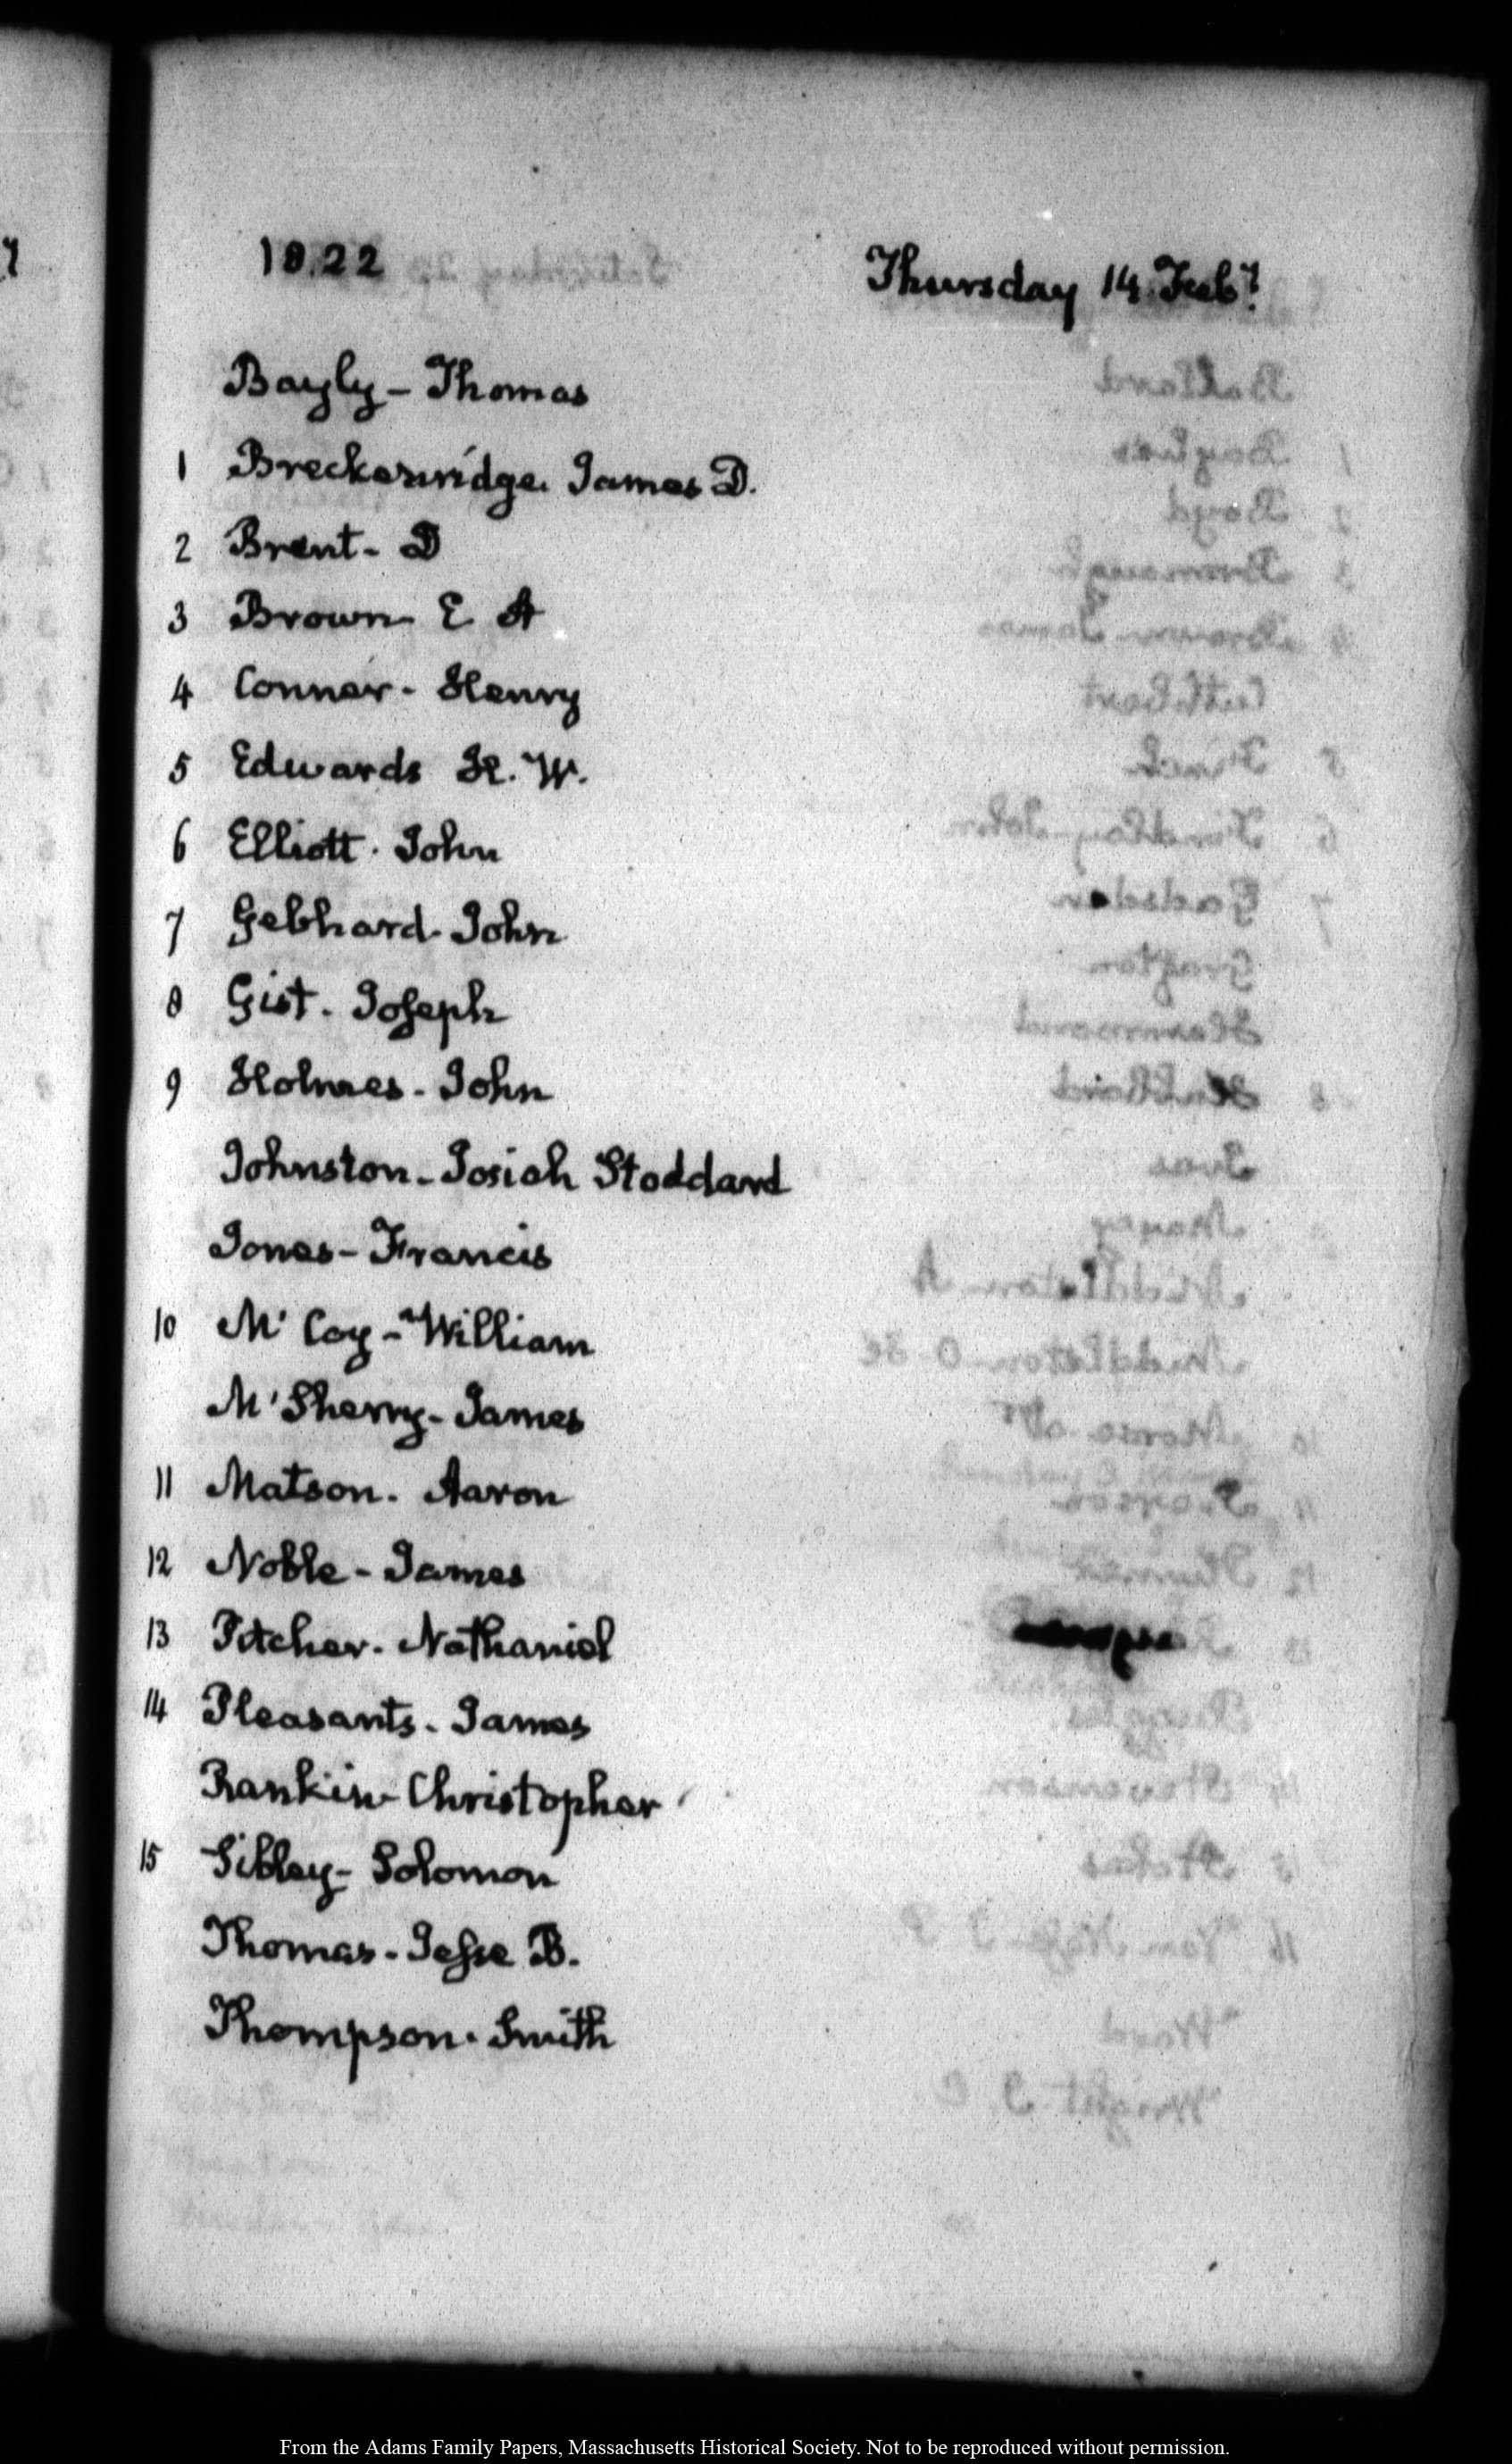 1822 Thursday 14. Feby.
Bayly - Thomas
1 Breckenridge. James D.
2 Brent - D
3 Brown - E A
4 Conner - Henry
5 Edwards H. W.
6 Elliott. John
7 Gebhard - John
8 Gist. Joseph
9 Holmes - John
Johnston - Josiah Stoddard
Jones - Francis
10 Mc Coy - William
Mc Sherry - James
11 Matson. Aaron
12 Noble - James
13 Pitcher. Nathaniel
14 Pleasants. James
Rankin - Christopher
15 Sibley - Solomon
Thomas - Jesse B.
Thompson. Smith
From the Adams Family Papers, Massachusetts Historical Society. Not to be reproduced without permission.